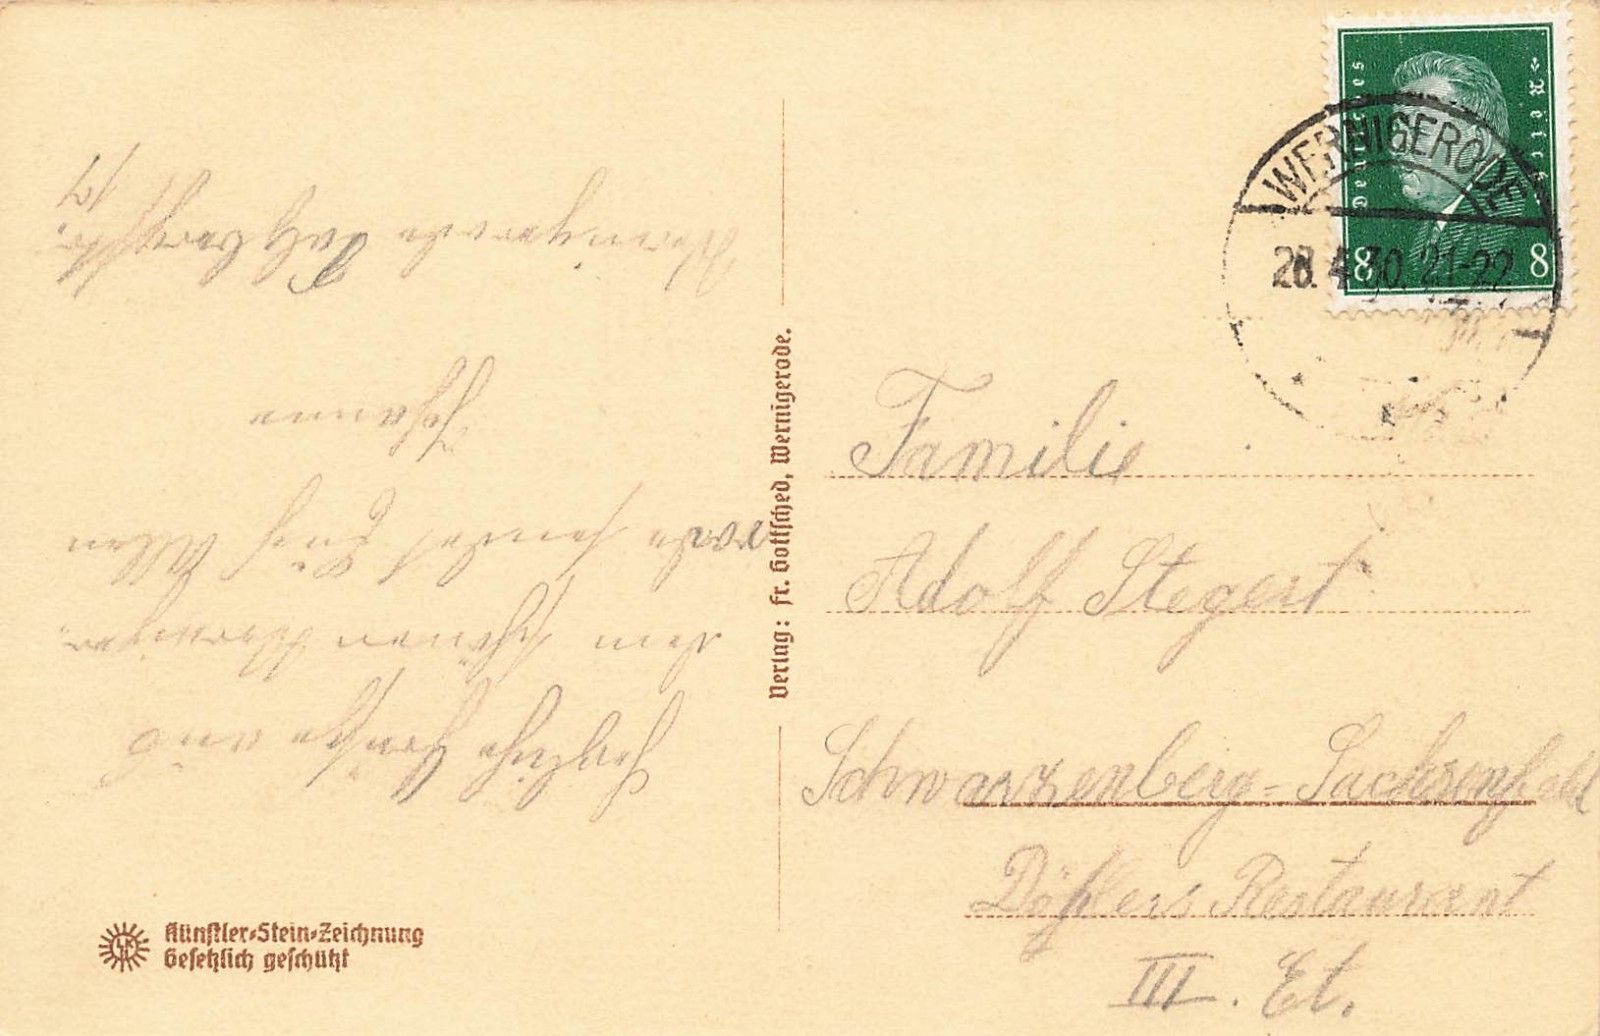 Herzliche Grüße aus
dem schönen Wernige-
rode sendet Euch Allen
Johanne
Wernigerode
Verlag: Fr. Gottsched, Wernigerode.
Künstler-Stein-Zeichnung
Gesetzlich geschützt
Deutsches Reich
8 8
WERNIGERODE
28.4.30. 21-22
Familie
Adolf Stegert
Schwarzenberg-Sachsenfeld
Döhlers Restaurant
III. Et.